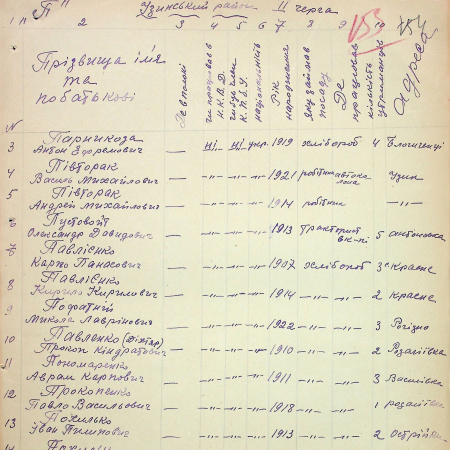 "П"
Узинський район II черга
153
154
2 3 4 5 6 7 8 9 10
Прізвища ім'я
та
побатькові
Де в полоні
чи працював в
Н.К.В.Д.
чи був член
К.П.б.У.
національність
Рік
народження
яку займав
посаду
Де
працював
кількість
утриманців
адреса
№
3 Парникоза
Антон Ефремович — ні ні укр. 1919 хлібороб 4
4 Півторак
Василь Михайлович — -"- -"- -"- 1921 робітник Узин
5 Півторак
Андрей Михайлович — -"- -"- -"- 1914 робітник — -"-
6 Пустовойт
Олександр Давидович — -"- -"- -"- 1913 тракторист 5 Антонівка
7 Павлієнко
Карпо Панасович — -"- -"- -"- 1907 хлібороб 3 с. Красне
8 Павлієнко
Кирило Кирилович — -"- -"- -"- 1914 -"- -"- 2 Красне
9 Пофатній
Микола Лаврінович — -"- -"- -"- 1922 -"- -"- 3 Рогізно
10 Павленко
Прокоп Кіндратович — -"- -"- -"- 1910 -"- -"- 2 Розаліївка
11 Пономаренко
Аврам Карпович — -"- -"- -"- 1911 -"- -"- 3 Василівка
12 Прокопенко
Павло Васильович — -"- -"- -"- 1918 -"- -"- 1 Розаліївка
13 Похилько
Іван Пилипович — -"- -"- -"- 1913 -"- -"- 2
14